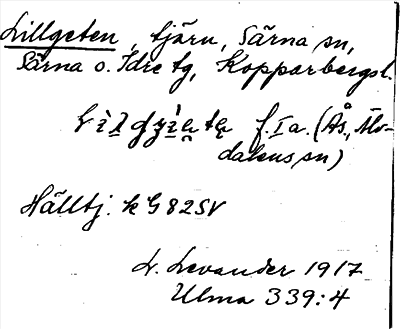 Lillgeten, tjärn, Särna sn,
Särna o. Idre tg, Kopparbergsl.
f. Ia. (Ås., Älv-
dalens sn)
Hälltj. k G 82SV
L. Levander 1917
Ulma 339:4